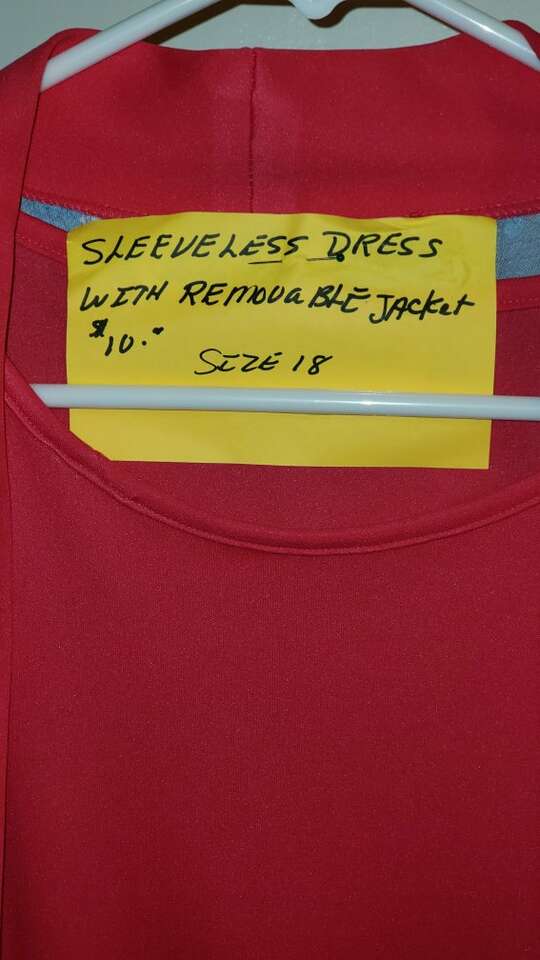 SLEEVELESS DRESS
WITH REMOVaBLE JACKet
$10.00
SIZE 18